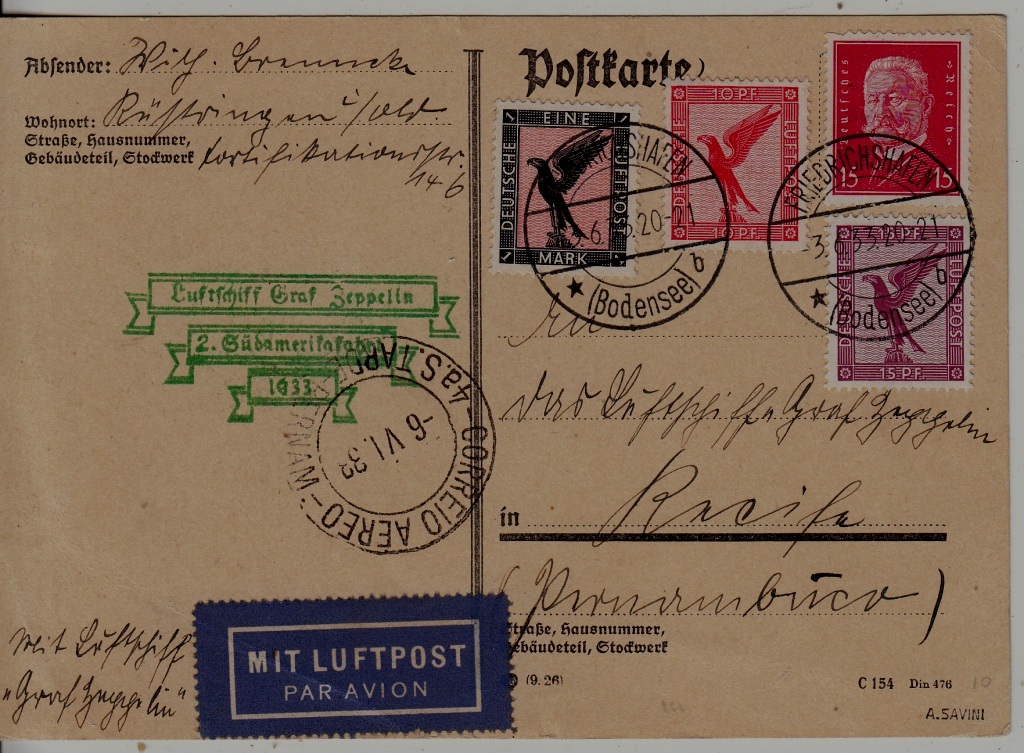 Absender: Wilh. Brennecke
Wohnort: Rüstringen i/Old.
Straße, Hausnummer,
Gebäudeteil, Stockwerk Fortifikationsstr.
146
Postkarte
EINE
DEUTSCHE
LUFTPOST
MARK
10 PF
DEUTSCHE
LUFTPOST
10 PF
Deutsches
Reich
15
15
DEUTSCHE
LUFTPOST
15 PF
FRIEDRICHSHAFEN
3.6.33.20-21
(Bodensee) b
FRIEDRICHSHAFEN
-3.6.33.20-21
(Bodensee) b
Luftschiff Graf Zeppelin
2. Südamerikafahrt
1933
4a.S. TARDE
CORREIO AEREO
-6 VI.33
An
das Luftschiff "Graf Zeppelin
in Recife
(Pernambuco)
Straße, Hausnummer,
Gebäudeteil, Stockwerk
(9. 26)
C 154 Din 476
10
A. SAVINI
Mit Luftschiff
"Graf Zeppelin"
MIT LUFTPOST
PAR AVION